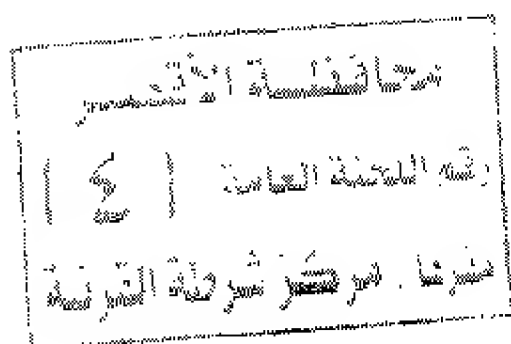 محافظة الأقصر
رقم اللجنة العامة ( ٤ )
مقرها . مركز شرطة القرنة